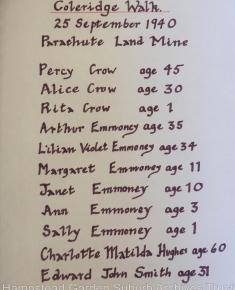 Coleridge Walk.
25 September 1940
Parachute Land Mine
Percy Crow age 45
Alice Crow age 30
Rita Crow age 1
Arthur Emmoney age 35
Lilian Violet Emmoney age 34
Margaret Emmoney age 11
Janet Emmoney age 10
Ann Emmoney age 3
Sally Emmoney age 1
Charlotte Matilda Hughes age 60
Edward John Smith age 31
Hampstead Garden Suburb Archives Trust